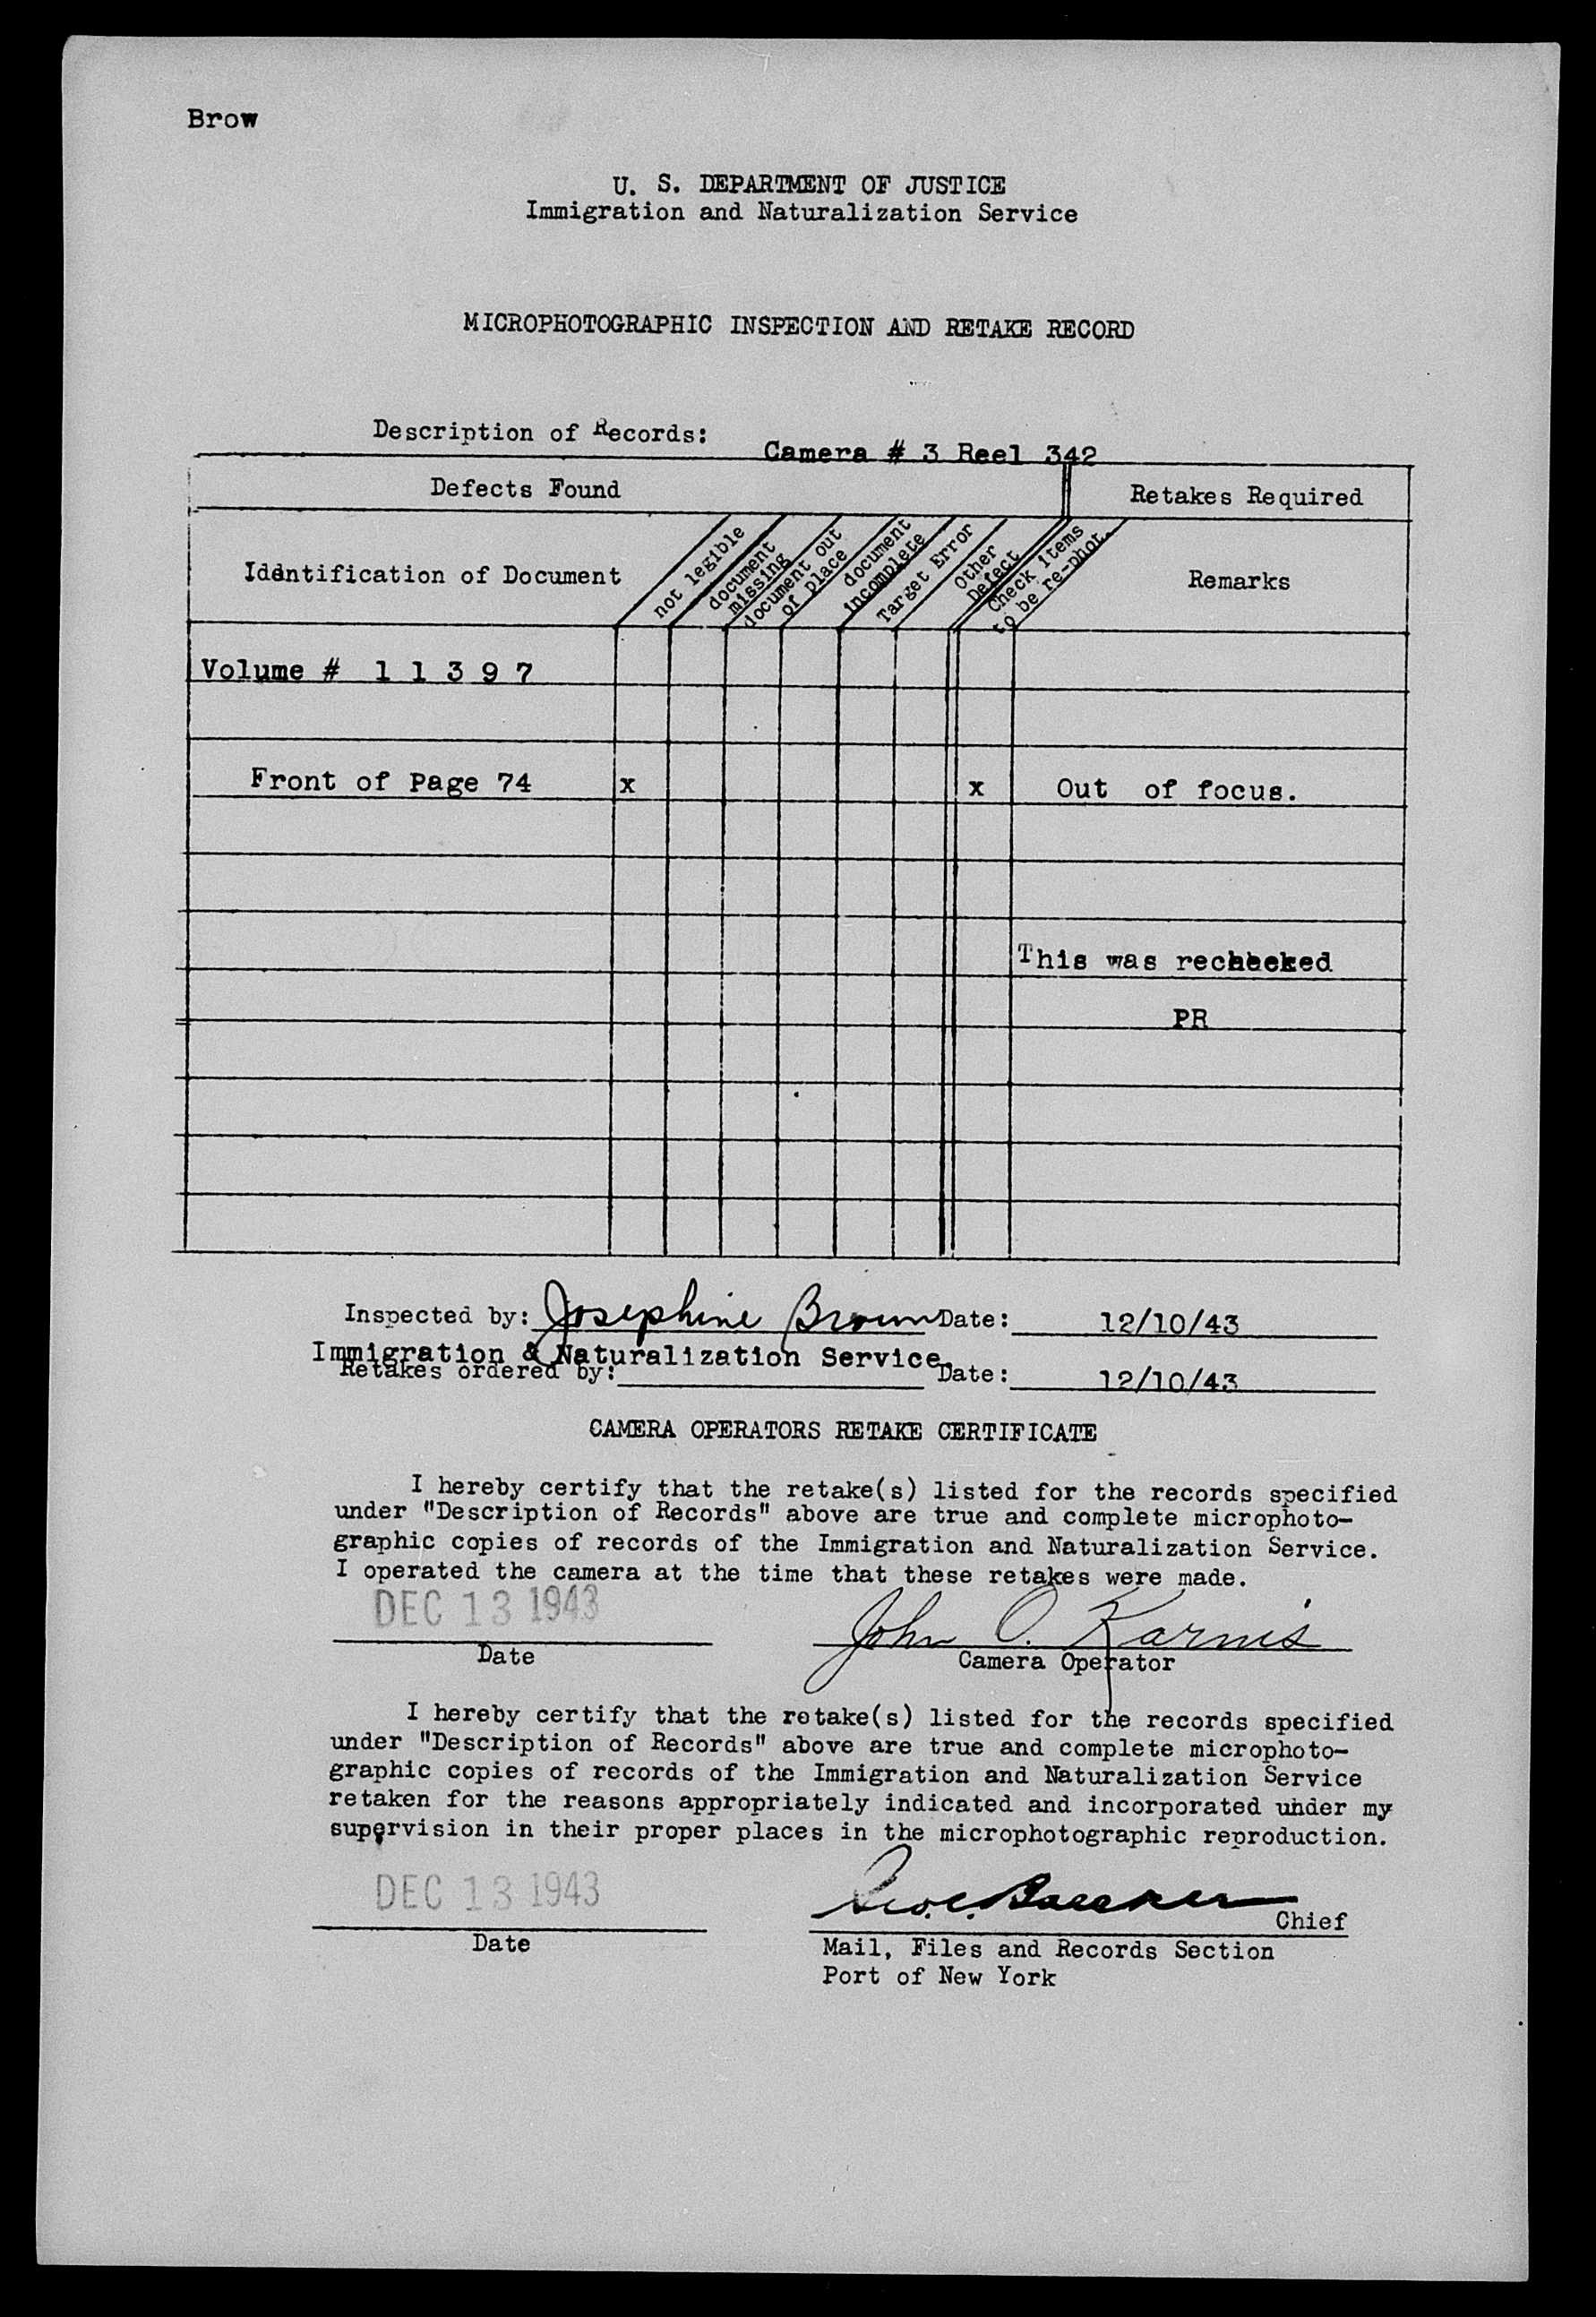 Brow
U. S. DEPARTMENT OF JUSTICE
Immigration and Naturalization Service
MICROPHOTOGRAPHIC INSPECTION AND RETAKE RECORD
Description of Records: Camera # 3 Reel 342
Defects Found Retakes Required
Identification of Document
not legible
document
missing
document out
of place
document
incomplete
Target Error
Other
Defect
Check items
to be re-phot.
Remarks
Volume # 1 1 3 9 7
Front of Page 74 x x Out of focus.
This was rechecked
PR
Inspected by: Josephine Brown Date: 12/10/43
Immigration & Naturalization Service.
Retakes ordered by: Date: 12/10/43
CAMERA OPERATORS RETAKE CERTIFICATE
I hereby certify that the retake(s) listed for the records specified
under "Description of Records" above are true and complete microphoto-
graphic copies of records of the Immigration and Naturalization Service.
I operated the camera at the time that these retakes were made.
DEC 13 1943 John O. Karnis
Date Camera Operator
I hereby certify that the retake(s) listed for the records specified
under "Description of Records" above are true and complete microphoto-
graphic copies of records of the Immigration and Naturalization Service
retaken for the reasons appropriately indicated and incorporated under my
supervision in their proper places in the microphotographic reproduction.
DEC 13 1943
Chief
Date
Mail, Files and Records Section
Port of New York